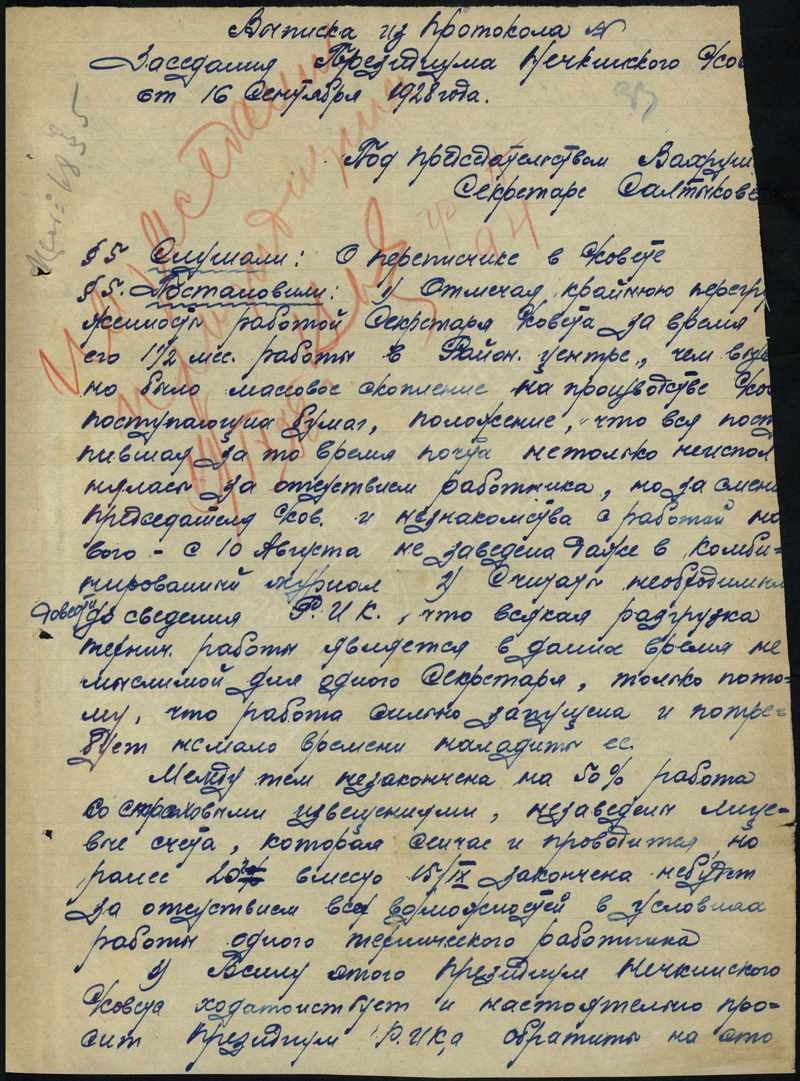 Выписка из Протокола №
Заседания Президиума Нечкинского С/сов
от 16 Сентября 1928 года.
Под председательством Вахруш
Секретаре Салтыкове
§5 Слушали: О переписчике в С/совете
§5. Постановили: 1) Отмечая крайнюю перегру
женность работой Секретаря С/совета за время
его 1 1/2 мес. работы в Район. центре, чем выз
но было массовое скопление на производстве С/сов
поступающих бумаг, положение, что вся посту
пившая за то время почта нетолько неиспол
нялась за отсутствием работника, но за смен
председателя С/сов. и незнакомства с работой но
вого - с 10 Августа не заведена даже в комби-
нированный журнал 2) Считать необходимым
довести до сведения Р.И.К., что всякая разгрузка
технич. работы является в данное время не
мыслимой для одного Секретаря, только пото-
му, что работа сильно запущена и потре-
бует немало времени наладить ее.
Между тем незакончена на 50% работа
со страховыми извещениями, незаведены лице-
вые счета, которая сейчас и проводится, но
ранее 20 вместо 15/IX закончена небудет
за отсутствием всех возможностей в условиях
работы одного технического работника
3) Всилу этого Президиум Нечкинского
С/совета ходатайствует и настоятельно про-
сит Президиум Р.И.К.а обратить на это